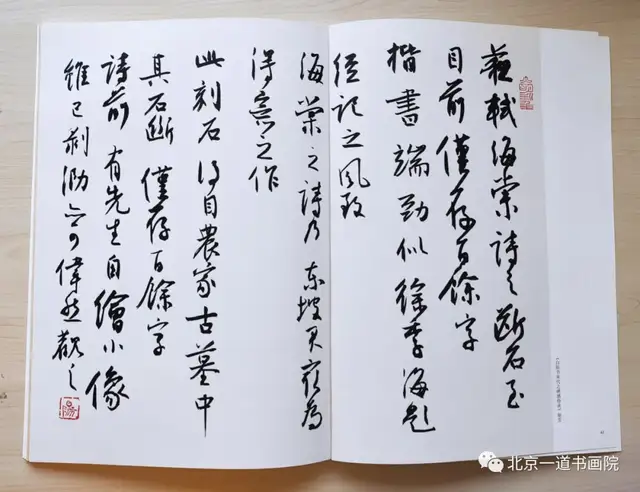 蘇軾海棠詩之斷石至
目前僅存百餘字
楷書端勁似徐季海題
經記之風致
海棠之詩乃東坡為
得意之作
此刻石得自農家古墓中
其石斷 僅存百餘字
詩前有先生自繪小像
雖已剝泐亦可偉然觀之
北京一道书画院